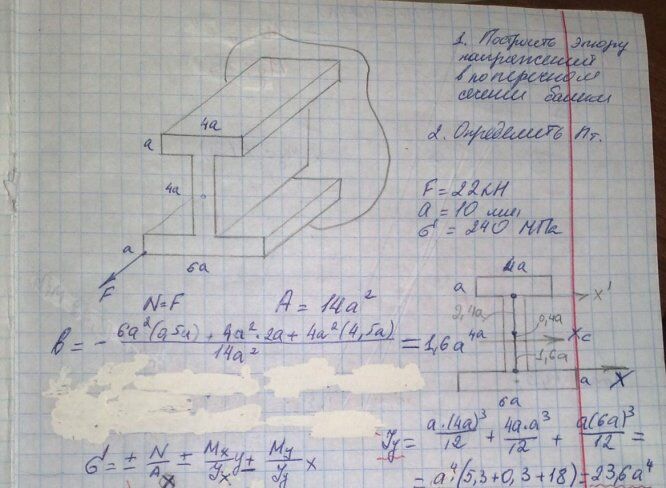 1. Построить эпюру
напряжений
в поперечном
сечении балки
2. Определить nт.
F = 22 кН
a = 10 мм
σ = 240 МПа
4a
a
4a
a
6a
F
N=F
A = 14a²
b = - 6a²(0,5a) + 4a²·2a + 4a²(4,5a) / 14a² = 1,6a
4a
a
x'
2,4a
0,4a
4a
xc
1,6a
a
X
6a
σ = ± N/A ± Mx/Jx y ± My/Jy x
Jy = a·(4a)³/12 + 4a·a³/12 + a(6a)³/12 =
= a⁴·(5,3+0,3+18) = 23,6a⁴